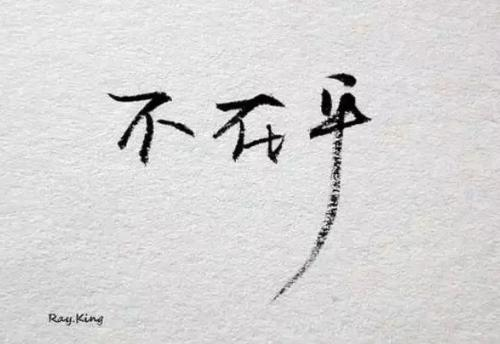 不在乎
Ray.King